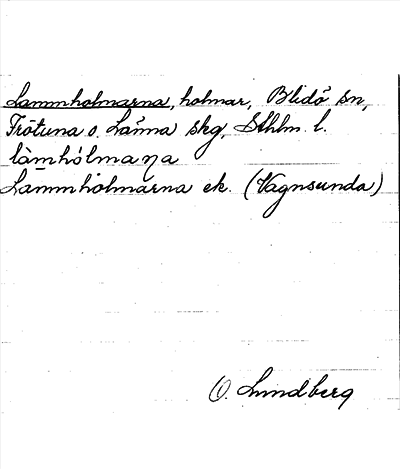 Lammholmarna, holmar, Blidö sn,
Frötuna o. Länna skg, Sthlm. l.
làmhólmaɳa
Lammholmarna ek. (Vagnsunda)
O. Lundberg